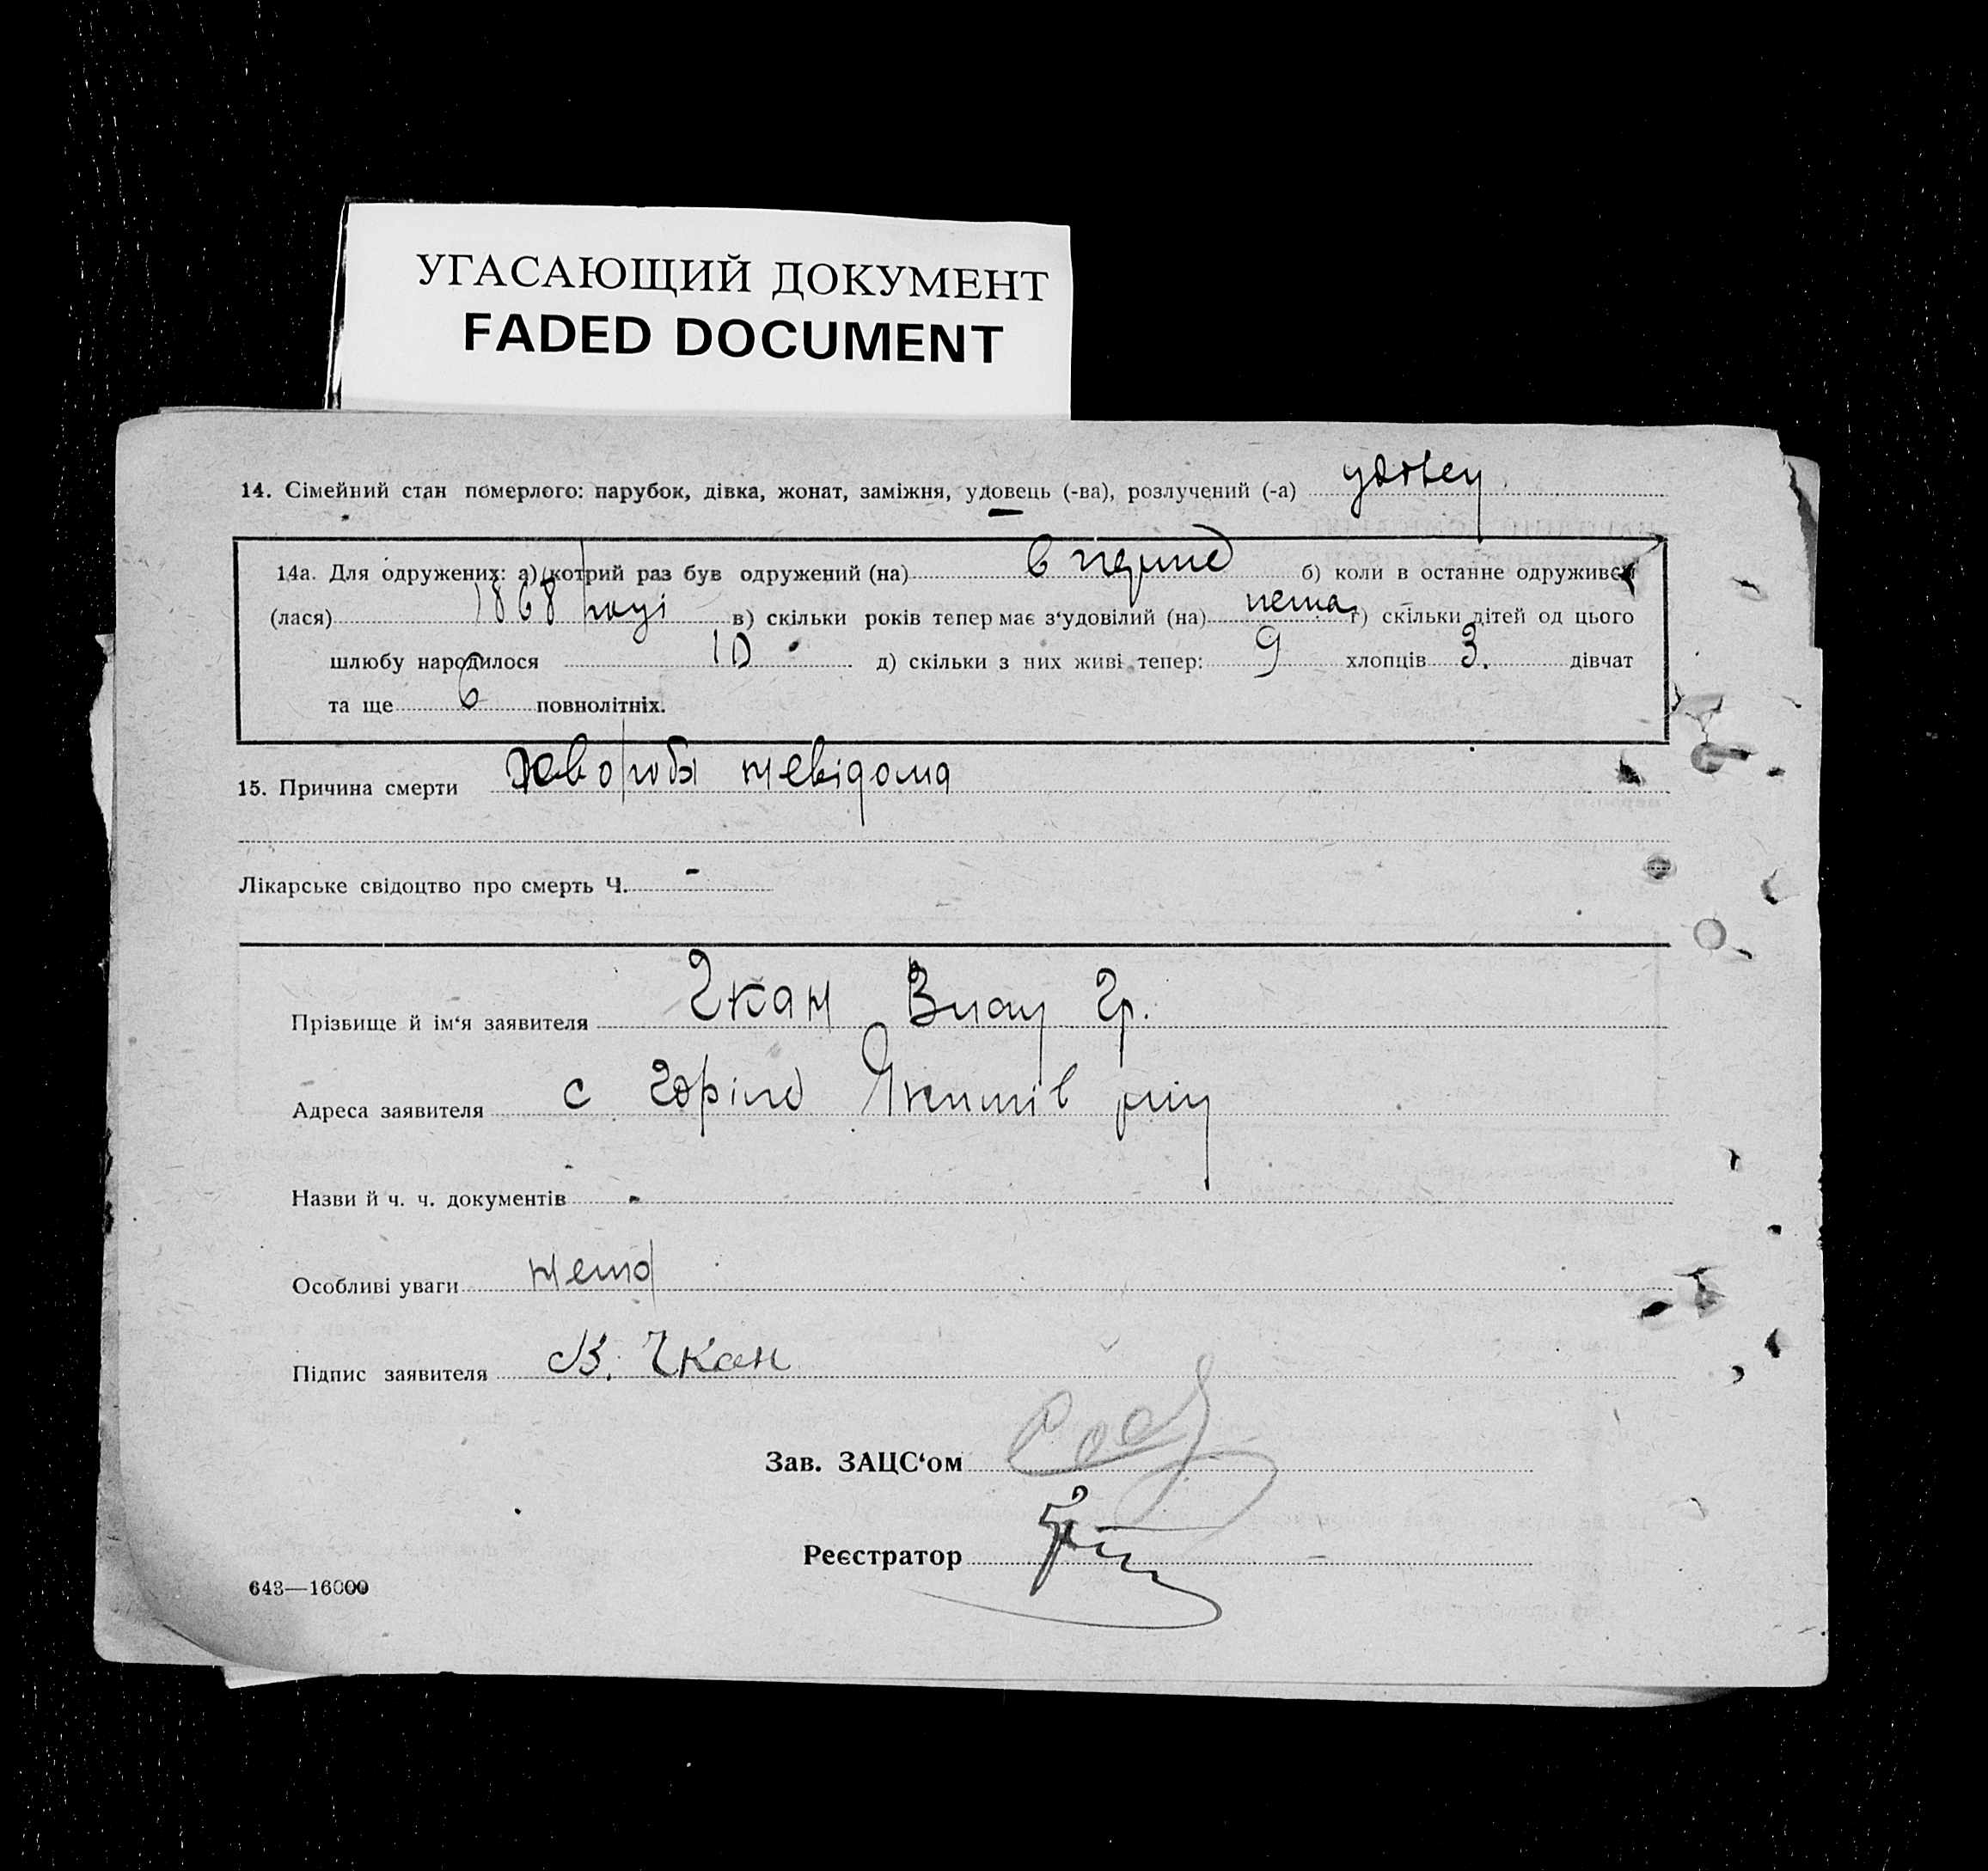 УГАСАЮЩИЙ ДОКУМЕНТ
FADED DOCUMENT
14. Сімейний стан померлого: парубок, дівка, жонат, заміжня, удовець (-ва), розлучений (-а) удовец
14а. Для одружених: а) котрий раз був одружений (на) в перше б) коли в останне одружився
(лася) 1868 році в) скільки років тепер має з‘удовілий (на) нема г) скільки дітей од цього
шлюбу народилося 10 д) скільки з них живі тепер: 9 хлопців 3. дівчат
та ще 6 повнолітніх.
15. Причина смерти хвороба невідома
Лікарське свідоцтво про смерть Ч. -
Прізвище й ім‘я заявителя Чкан Гр.
Адреса заявителя с
Назви й ч. ч. документів -
Особливі уваги нема
Підпис заявителя В. Чкан
Зав. ЗАЦС‘ом
Реєстратор
643—16000